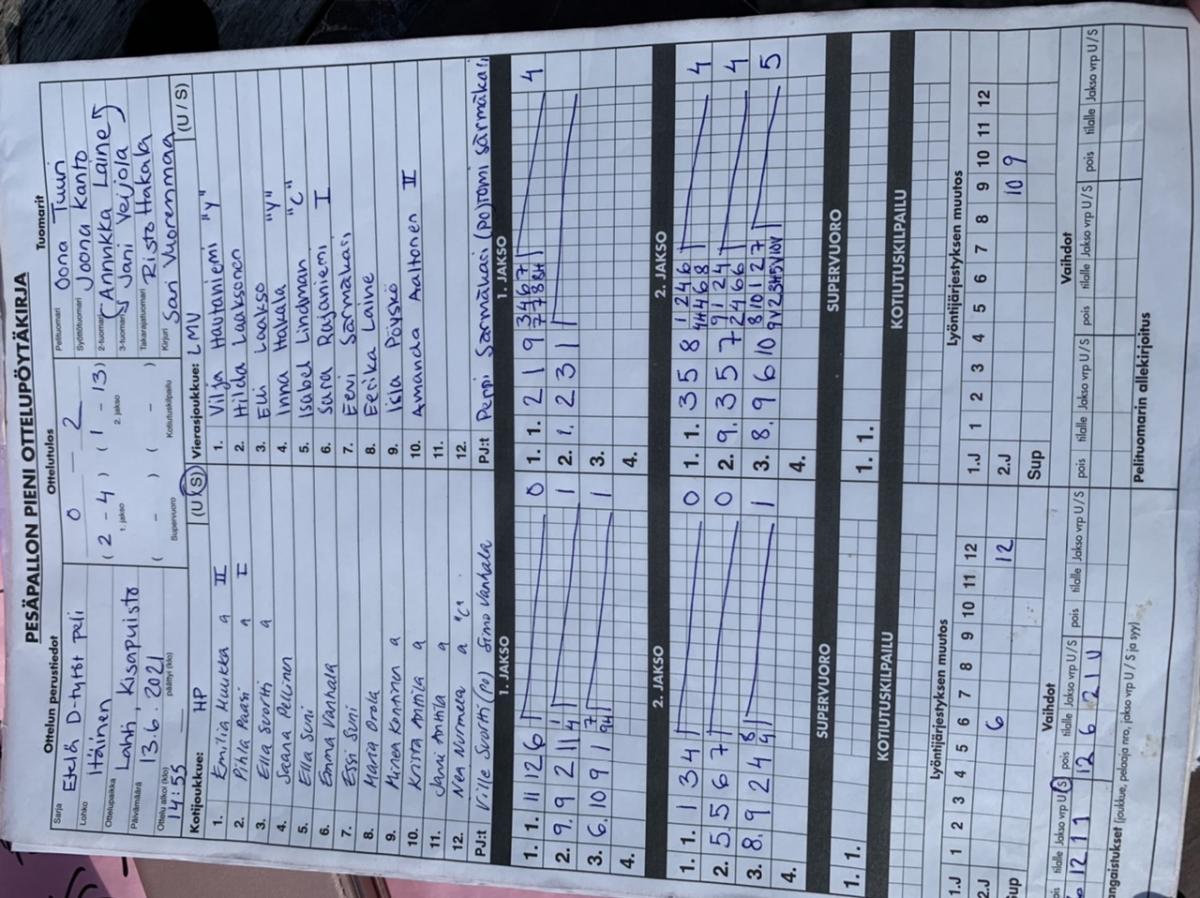 PESÄPALLON PIENI OTTELUPÖYTÄKIRJA
Ottelun perustiedot
Ottelutulos
Tuomarit
Sarja
Etelä D-tytöt peli
Lohko
Itäinen
Ottelupaikka
Lahti, Kisapuisto
Päivämäärä
13.6.2021
Ottelu alkoi (klo)
14:55
päättyi (klo)
0 – 2
(2 – 4) (1 – 13)
1. jakso 2. jakso
( – ) ( – )
Supervuoro Kotiutuskilpailu
Pelituomari
Oona Tuuri
Syöttötuomari
Joona Kanto
2-tuomari
(Annukka Laine)
3-tuomari
Jani Veijola
Takarajatuomari
Risto Hakala
Kirjuri
Sari Vuorenmaa
Kotijoukkue: HP (U/S)
1. Emilia Huukka a II
2. Pihla Paasi a I
3. Ella Suortti a
4. Saana Pellinen
5. Ella Suni
6. Emma Vanhala
7. Essi Suni
8. Maria Orala
9. Minea Konttinen a
10. Krista Anttila a
11. Janu Anttila a
12. Nea Nurmela a "C"
PJ:t Ville Suortti (po) Simo Vanhala
Vierasjoukkue: LMV (U / S)
1. Vilja Hautaniemi "y"
2. Hilda Laaksonen
3. Elli Laakso
4. Inna Hakala "y"
5. Isabel Lindman "C"
6. Sara Rajaniemi I
7. Eevi Särmäkari
8. Eerika Laine
9. Isla Pöyskö
10. Amanda Aaltonen II
11.
12.
PJ:t Peppi Särmäkari (po) Tomi Särmäkari
1. JAKSO
1. 1. 11 12 6 0
2. 9. 9 2 11 4 1 1
3. 6. 10 9 1 7 9H 1
4.
1. JAKSO
1. 1. 2 1 9 3 4 6 7 7 7 8 8H 4
2. 1. 2 3 1
3.
4.
2. JAKSO
1. 1. 1 3 4 0
2. 5. 5 6 7 0
3. 8. 9 2 4 8 4 1
4.
2. JAKSO
1. 1. 3 5 8 1 2 4 6 4H 4 6 8 4
2. 9. 3 5 7 9 1 2 4 2 4 6 6 4
3. 8. 9 6 10 8 10 1 2 7 9V 2 3H 5V 10V 5
4.
SUPERVUORO
1. 1.
SUPERVUORO
1. 1.
KOTIUTUSKILPAILU
KOTIUTUSKILPAILU
Lyöntijärjestyksen muutos
1.J 1 2 3 4 5 6 7 8 9 10 11 12
2.J 6 12
Sup
Lyöntijärjestyksen muutos
1.J 1 2 3 4 5 6 7 8 9 10 11 12
2.J 10 9
Sup
Vaihdot
pois tilalle Jakso vrp U/S pois tilalle Jakso vrp U/S pois tilalle Jakso vrp U/S
6 12 1 1 12 6 2 1 U
Vaihdot
pois tilalle Jakso vrp U/S pois tilalle Jakso vrp U/S pois tilalle Jakso vrp U/S
Rangaistukset (joukkue, pelaaja nro, jakso vrp U / S ja syy)
Pelituomarin allekirjoitus